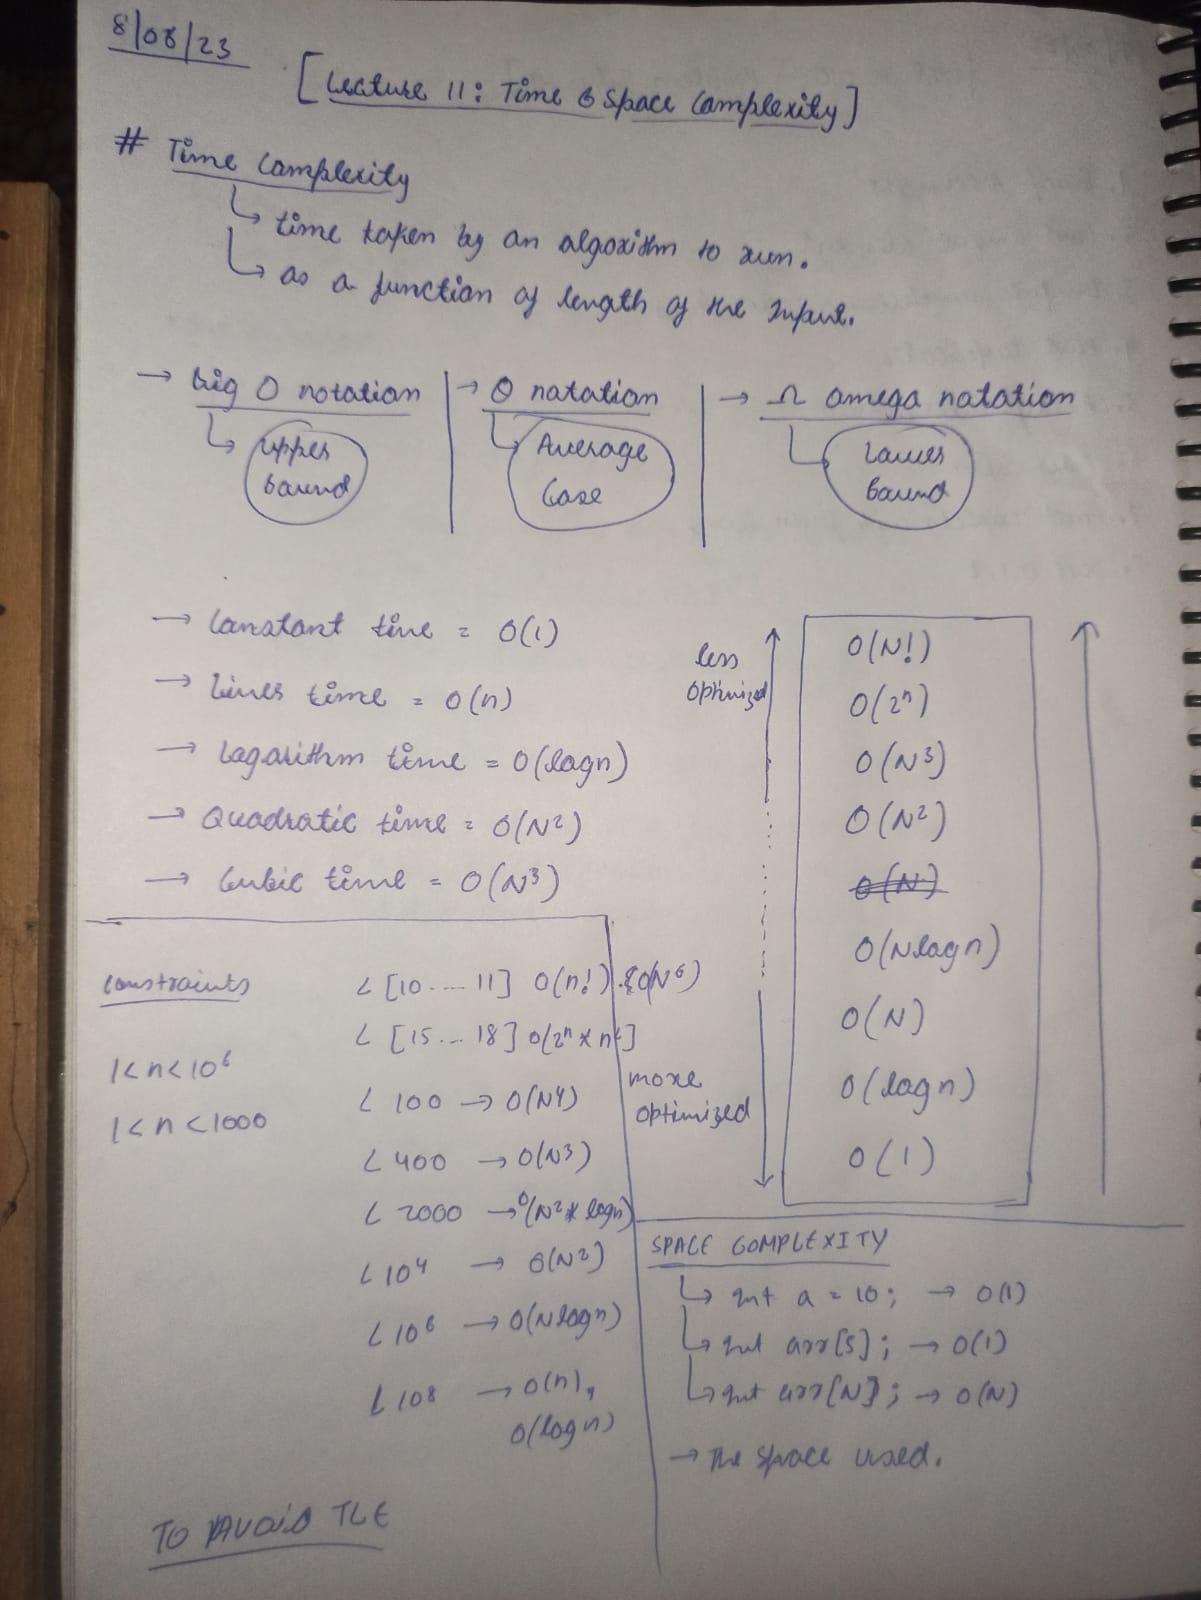 8/08/23
[Lecture 11: Time & Space Complexity]
# Time Complexity
↳ time taken by an algorithm to run.
↳ as a function of length of the Input.
→ Big O notation
↳ Upper bound
→ Θ notation
↳ Average Case
→ Ω omega notation
↳ Lower bound
→ Constant time = O(1)
→ Liner time = O(n)
→ Logarithm time = O(logn)
→ Quadratic time = O(N²)
→ Cubic time = O(N³)
less optimized
more optimized
O(N!)
O(2ⁿ)
O(N³)
O(N²)
O(N)
O(Nlogn)
O(N)
O(logn)
O(1)
Constraints
1<n<10⁶
1<n<1000
< [10 .... 11] O(n!), O(N⁶)
< [15 ... 18] O(2ⁿ * n²)
< 100 → O(N⁴)
< 400 → O(N³)
< 2000 → O(N² * logn)
< 10⁴ → O(N²)
< 10⁶ → O(Nlogn)
< 10⁸ → O(n),
O(logn)
SPACE COMPLEXITY
↳ int a = 10; → O(1)
↳ int arr[5]; → O(1)
↳ int arr[N]; → O(N)
→ The space used.
TO AVOID TLE